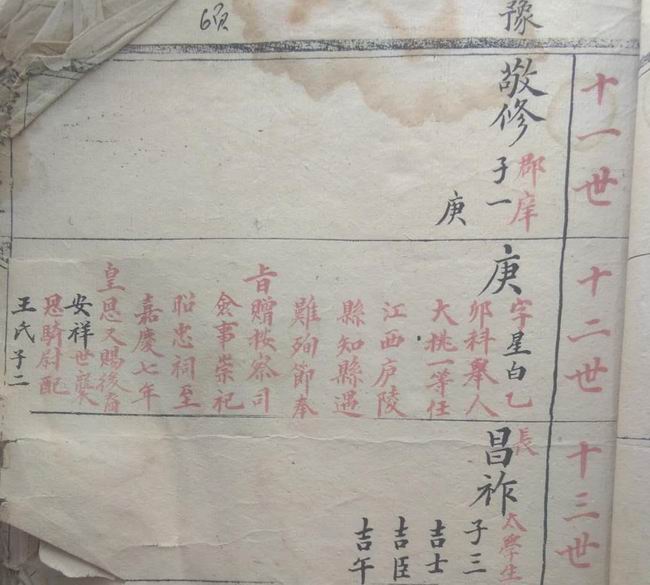 豫
十一世
敬修
郡庠
子一
庚
十二世
庚
字星白乙
卯科舉人
大挑一等任
江西庐陵
縣知縣遇
難殉節奉
旨贈按察司
僉事崇祀
昭忠祠至
嘉慶七年
皇恩又賜後裔
安祥世襲
恩騎尉配
王氏子二
十三世
長
昌祚
太學生
子三
吉士
吉臣
吉午